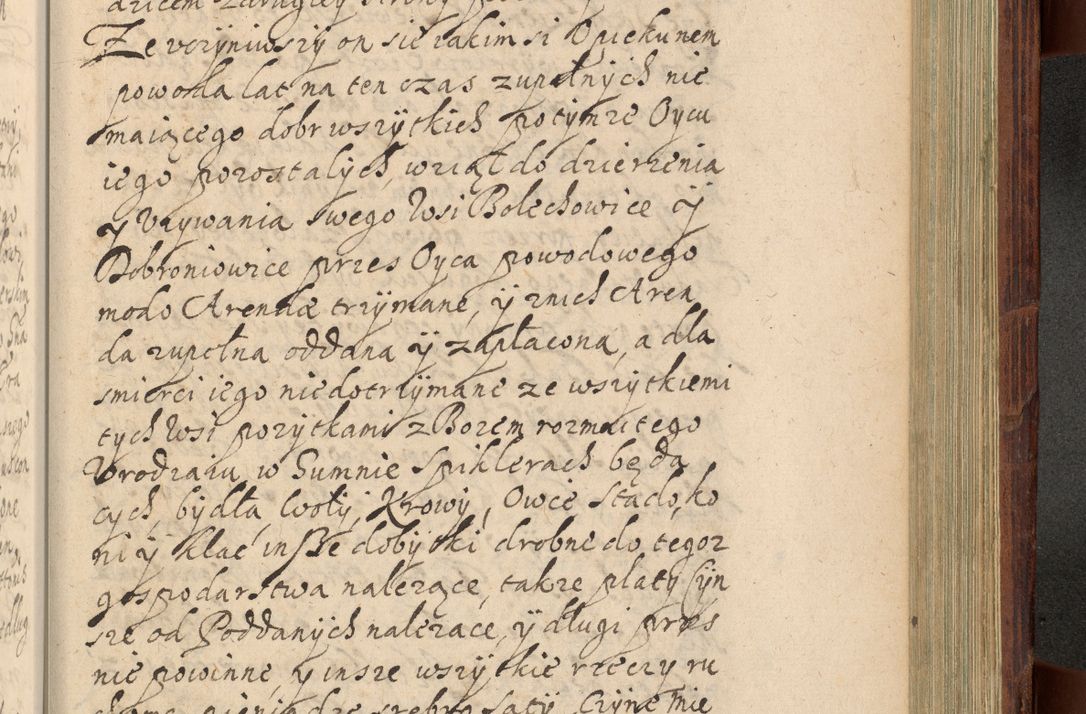 Ze vczyniwszÿ on sie takim si Opiekunem
powoda lat na ten czas zupełnÿch nie
maiącego dobr wszÿtkich po tÿmze Oycu
iego pozostałych, wziął do dzierzenia
y Vzywania swego Wsi Bolechowice ÿ
Dobroniowice przes Oyca powodowego
modo Arendæ trzÿmane, ÿ znich Aren
da zupełna oddana ÿ zapłacona, a dla
smierci iego niedotrzÿmane ze wszÿtkiemi
tych Wsi pozÿtkami z Bozem rozmaitego
Vrodzaiu w Gumnie Spiklerach będą
cych, bÿdła, Wołÿ, Krowÿ, Owce stado, ko
ni ÿ Klac insze dobÿtki drobne do tegoz
gospodarstwa nalezące, takze płaty Czÿn
sze od Poddanÿch nalezace, ÿ długi przes
nie powinne, y insze wszÿtkie rzeczy ru
chome, pieniądze srebro szatÿ, Czÿne Mie